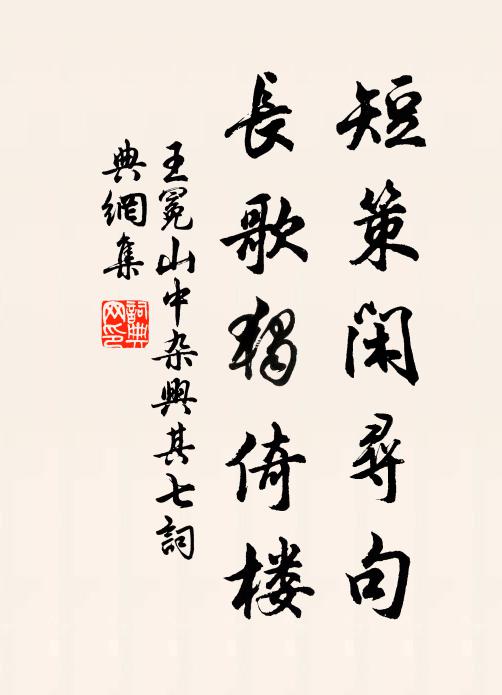 短策閑尋句
長歌獨倚楼
王冕山中杂興其七詞
典網集
詞典
网印